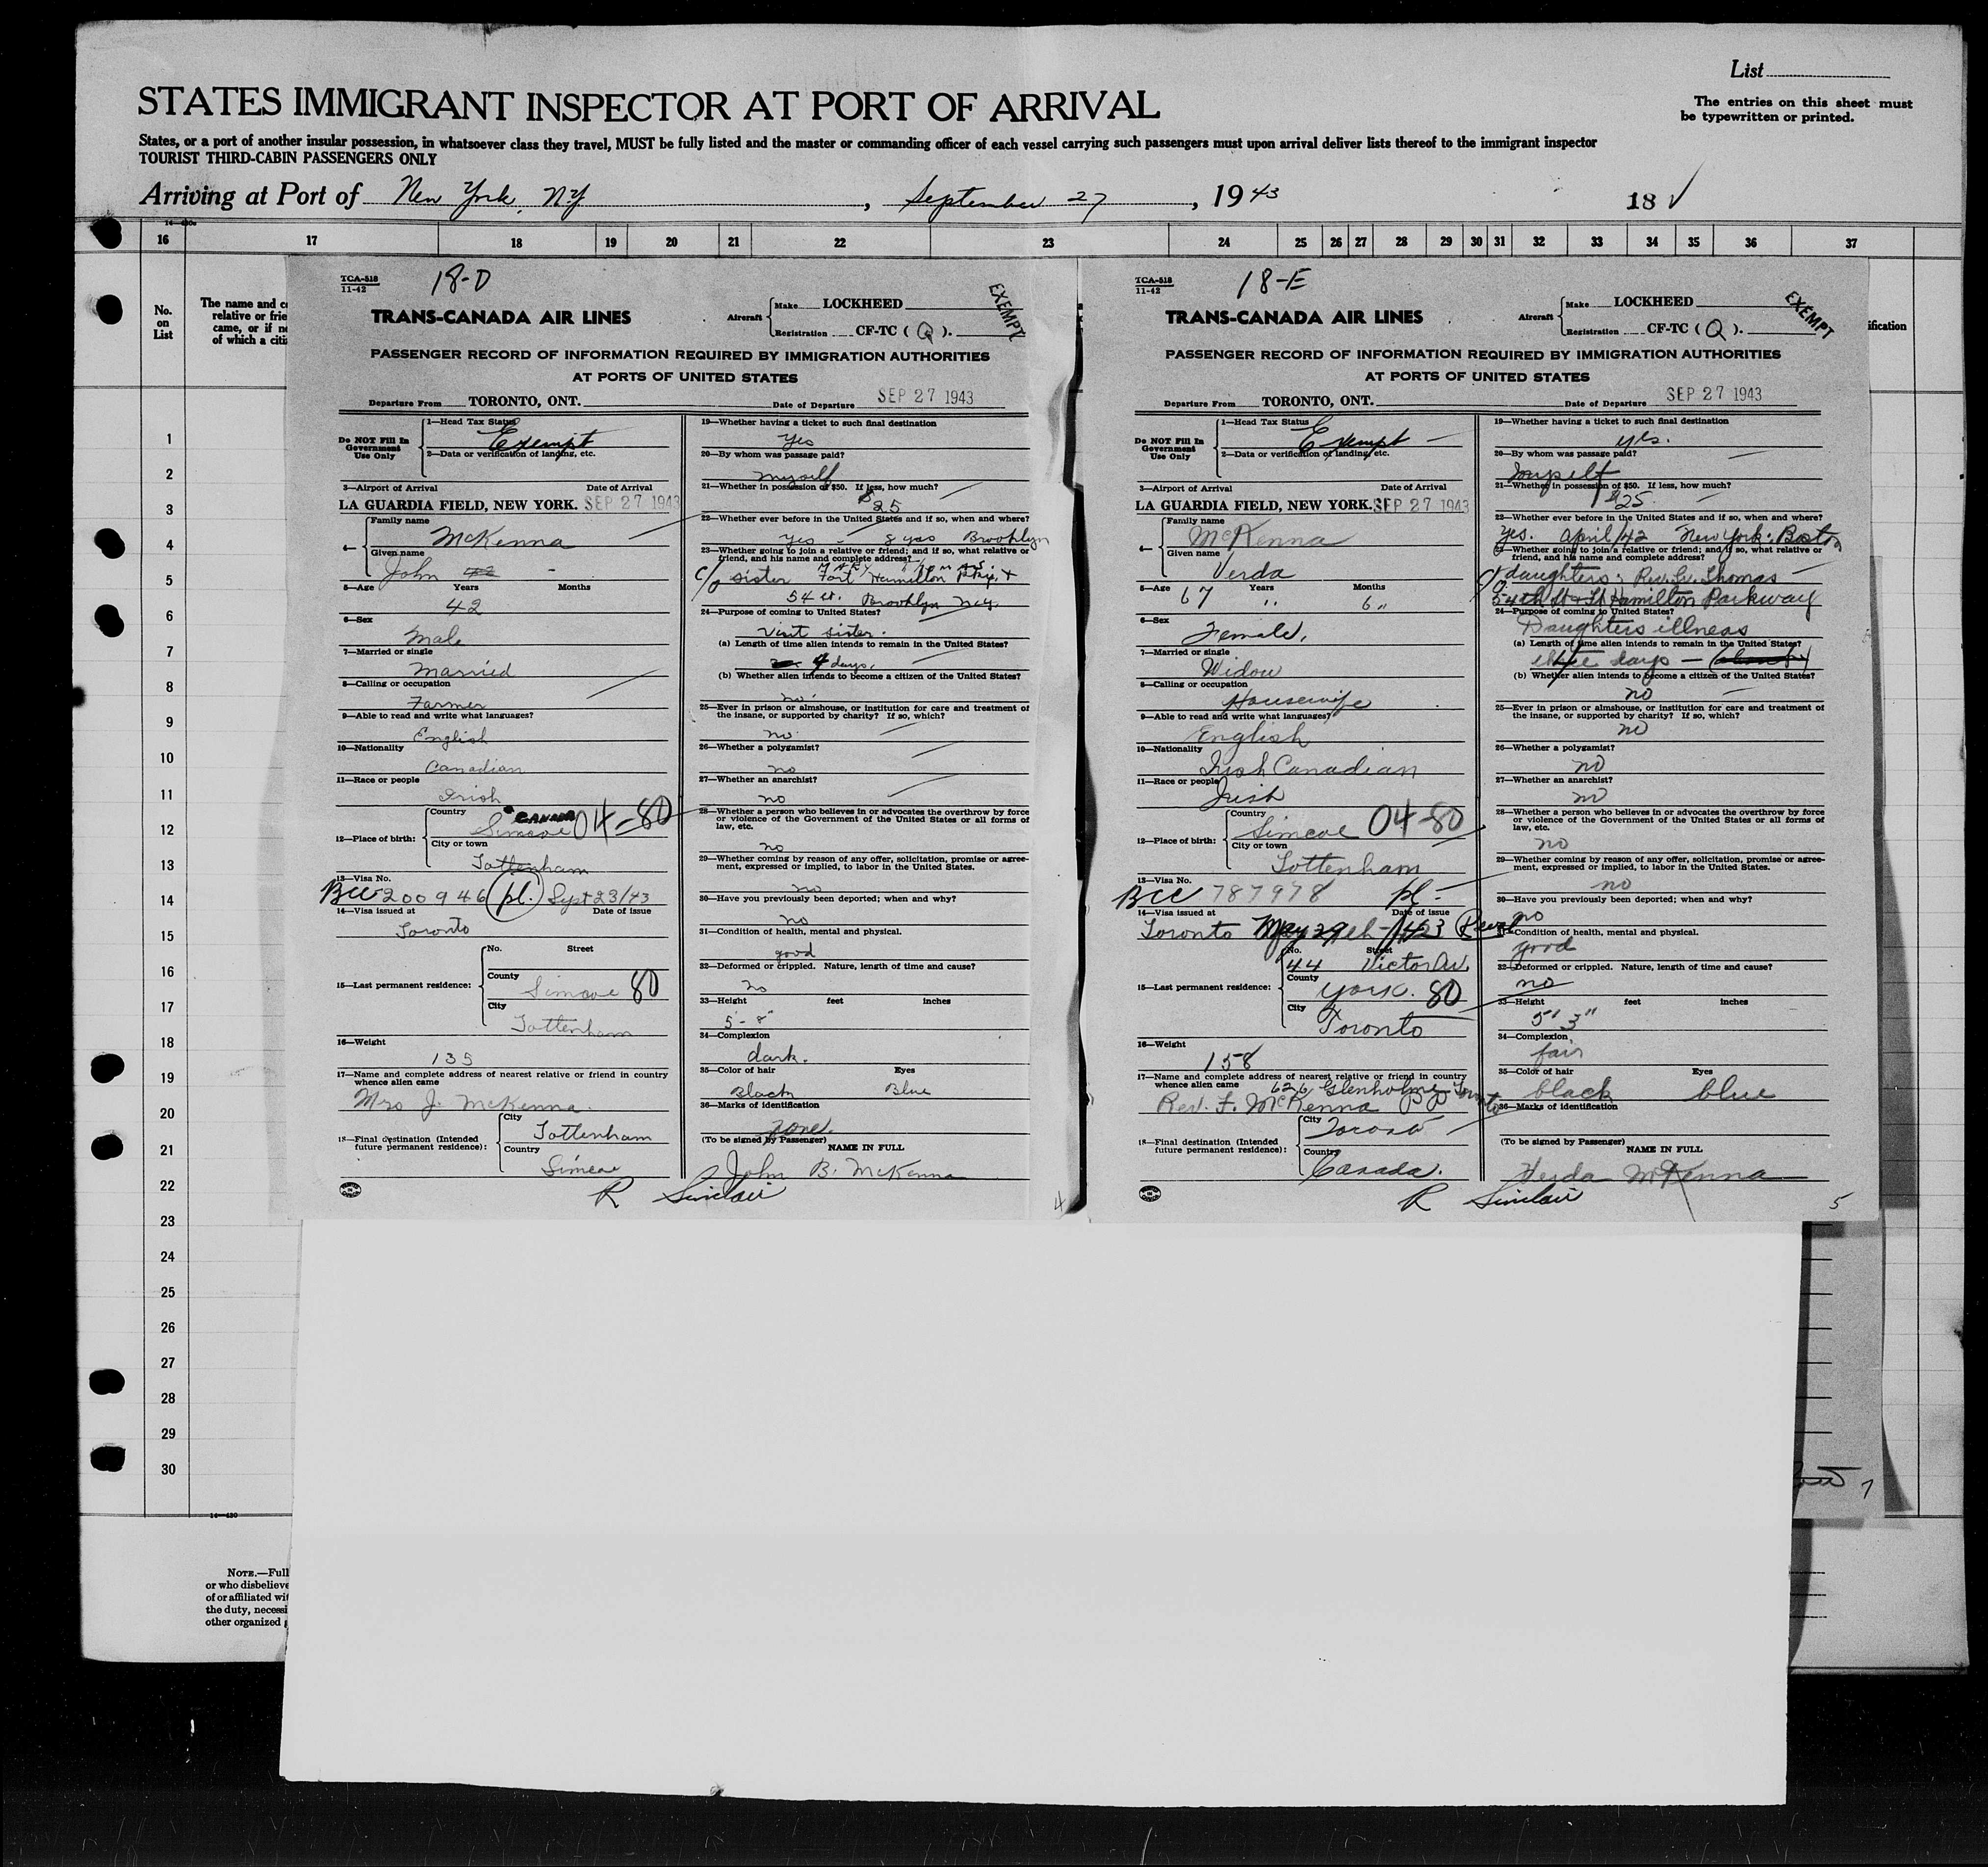 List
STATES IMMIGRANT INSPECTOR AT PORT OF ARRIVAL
The entries on this sheet must
be typewritten or printed.
States, or a port of another insular possession, in whatsoever class they travel, MUST be fully listed and the master or commanding officer of each vessel carrying such passengers must upon arrival deliver lists thereof to the immigrant inspector
TOURIST THIRD-CABIN PASSENGERS ONLY
Arriving at Port of New York, NY, September 27, 1943
18 ✓
16 17 18 19 20 21 22 23 24 25 26 27 28 29 30 31 32 33 34 35 36 37
No.
on
List
The name and c
relative or frie
came, or if n
of which a citi
ification
1
2
3
4
5
6
7
8
9
10
11
12
13
14
15
16
17
18
19
20
21
22
23
24
25
26
27
28
29
30
14—430
NOTE.—Full
or who disbelieve
of or affiliated wit
the duty, necessi
other organized
TCA-518
11-42
18-D
TRANS-CANADA AIR LINES
Aircraft
Make LOCKHEED
Registration CF-TC (Q).
EXEMPT
PASSENGER RECORD OF INFORMATION REQUIRED BY IMMIGRATION AUTHORITIES
AT PORTS OF UNITED STATES
Departure From TORONTO, ONT. Date of Departure SEP 27 1943
Do NOT Fill In
Government
Use Only
1—Head Tax Status
Exempt
2—Data or verification of landing, etc.
3—Airport of Arrival Date of Arrival
LA GUARDIA FIELD, NEW YORK. SEP 27 1943
4—
Family name
McKenna
Given name
John
5—Age Years Months
42
6—Sex
Male
7—Married or single
Married
8—Calling or occupation
Farmer
9—Able to read and write what languages?
English
10—Nationality
Canadian
11—Race or people
Irish
12—Place of birth:
Country
CANADA
Simcoe 04-80
City or town
Tottenham
13—Visa No.
BCC 200946 (pl.) Sept 23/43
14—Visa issued at Date of issue
Toronto
15—Last permanent residence:
No. Street
County
Simcoe 80
City
Tottenham
16—Weight
135
17—Name and complete address of nearest relative or friend in country
whence alien came
Mrs J. McKenna.
18—Final destination (Intended
future permanent residence):
City
Tottenham
Country
Simcoe
19—Whether having a ticket to such final destination
Yes
20—By whom was passage paid?
myself
21—Whether in possession of $50. If less, how much?
$25
22—Whether ever before in the United States and if so, when and where?
Yes - 8 yrs Brooklyn
23—Whether going to join a relative or friend; and if so, what relative or
friend, and his name and complete address?
c/o sister Fort Hamilton Pkwy. +
54 st. Brooklyn N.Y.
24—Purpose of coming to United States?
Visit sister.
(a) Length of time alien intends to remain in the United States?
4 days.
(b) Whether alien intends to become a citizen of the United States?
no.
25—Ever in prison or almshouse, or institution for care and treatment of
the insane, or supported by charity? If so, which?
no
26—Whether a polygamist?
no
27—Whether an anarchist?
no
28—Whether a person who believes in or advocates the overthrow by force
or violence of the Government of the United States or all forms of
law, etc.
no
29—Whether coming by reason of any offer, solicitation, promise or agree-
ment, expressed or implied, to labor in the United States.
no
30—Have you previously been deported; when and why?
no
31—Condition of health, mental and physical.
good
32—Deformed or crippled. Nature, length of time and cause?
no
33—Height feet inches
5'-8"
34—Complexion
dark.
35—Color of hair Eyes
Black Blue
36—Marks of identification
none
(To be signed by Passenger) NAME IN FULL
John B. McKenna
R Sinclair
4
TCA-518
11-42
18-E
TRANS-CANADA AIR LINES
Aircraft
Make LOCKHEED
Registration CF-TC (Q).
EXEMPT
PASSENGER RECORD OF INFORMATION REQUIRED BY IMMIGRATION AUTHORITIES
AT PORTS OF UNITED STATES
Departure From TORONTO, ONT. Date of Departure SEP 27 1943
Do NOT Fill In
Government
Use Only
1—Head Tax Status
Exempt
2—Data or verification of landing, etc.
3—Airport of Arrival Date of Arrival
LA GUARDIA FIELD, NEW YORK. SEP 27 1943
4—
Family name
McKenna
Given name
Verda
5—Age Years Months
67 6
6—Sex
Female,
7—Married or single
Widow
8—Calling or occupation
Housewife
9—Able to read and write what languages?
English
10—Nationality
Irish Canadian
11—Race or people
Irish
12—Place of birth:
Country
Simcoe 04-80
City or town
Tottenham
13—Visa No.
BCC 787978 pl-
14—Visa issued at Date of issue
Toronto May 29th
15—Last permanent residence:
No. Street
44 Victor Av.
County
York. 80
City
Toronto
16—Weight
158
17—Name and complete address of nearest relative or friend in country
whence alien came
626 Glenholme Toronto
Rev. F. McKenna
18—Final destination (Intended
future permanent residence):
City
Toronto
Country
Canada.
19—Whether having a ticket to such final destination
yes.
20—By whom was passage paid?
myself
21—Whether in possession of $50. If less, how much?
$25
22—Whether ever before in the United States and if so, when and where?
Yes. April/42 New York: Boston
23—Whether going to join a relative or friend; and if so, what relative or
friend, and his name and complete address?
c/o daughters; Rev. Sr. Thomas
54th St + Ft Hamilton Parkway
24—Purpose of coming to United States?
Daughters illness
(a) Length of time alien intends to remain in the United States?
three days —
(b) Whether alien intends to become a citizen of the United States?
no
25—Ever in prison or almshouse, or institution for care and treatment of
the insane, or supported by charity? If so, which?
no
26—Whether a polygamist?
no
27—Whether an anarchist?
no
28—Whether a person who believes in or advocates the overthrow by force
or violence of the Government of the United States or all forms of
law, etc.
no
29—Whether coming by reason of any offer, solicitation, promise or agree-
ment, expressed or implied, to labor in the United States.
no
30—Have you previously been deported; when and why?
no
31—Condition of health, mental and physical.
good
32—Deformed or crippled. Nature, length of time and cause?
no
33—Height feet inches
5' 3"
34—Complexion
fair
35—Color of hair Eyes
black blue
36—Marks of identification
(To be signed by Passenger) NAME IN FULL
Verda McKenna
R Sinclair
5
7